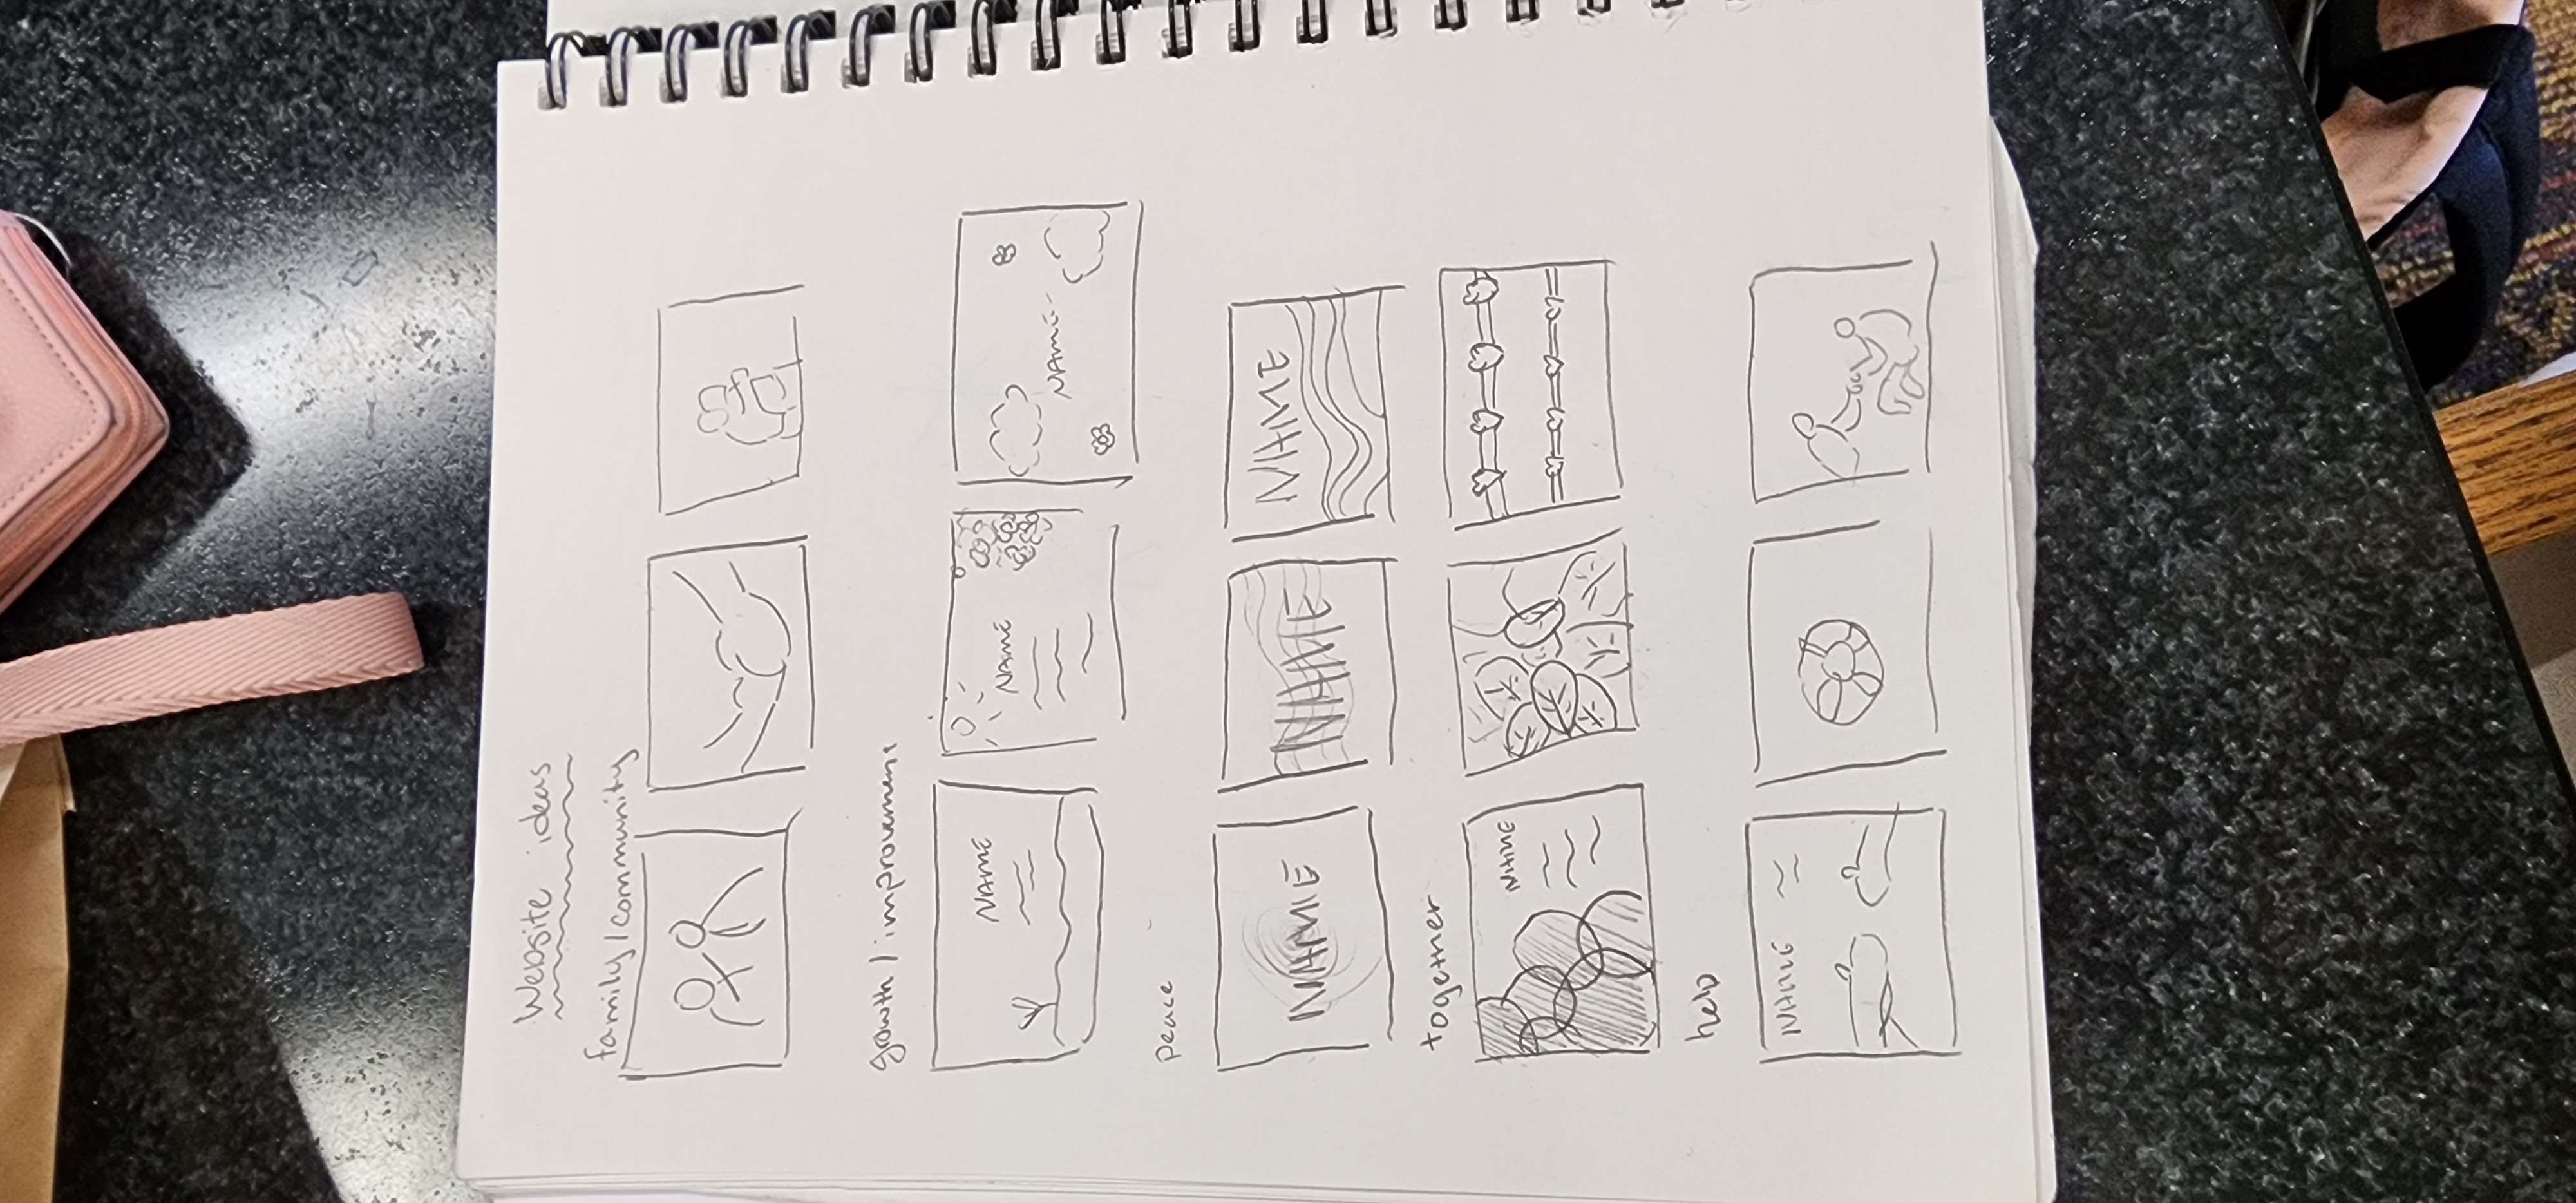 Website ideas
family/community
growth/improvement
NAME
NAME
NAME
Peace
NAME
NAME
NAME
together
NAME
help
NAME